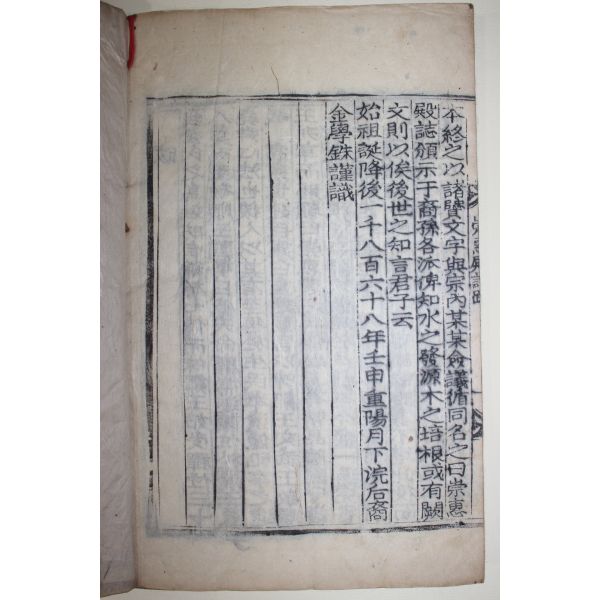 本終之以諸贒文字與宗內某某僉議循同名之曰崇惠
殿誌頒示于裔孫各派俾知水之發源木之培根或有闕
文則以俟後世之知言君子云
始祖誕降後一千八百六十八年壬申重陽月下浣后裔
金學銖謹識